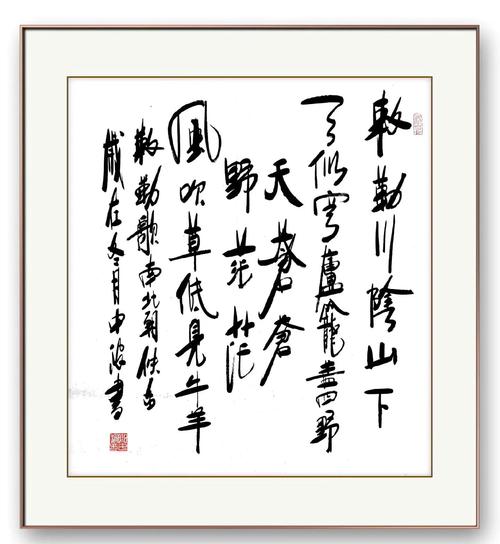 敕勒川陰山下
天似穹廬籠蓋四野
天蒼蒼
野茫茫
風吹草低見牛羊
敕勒歌南北朝佚名
歲在冬月書